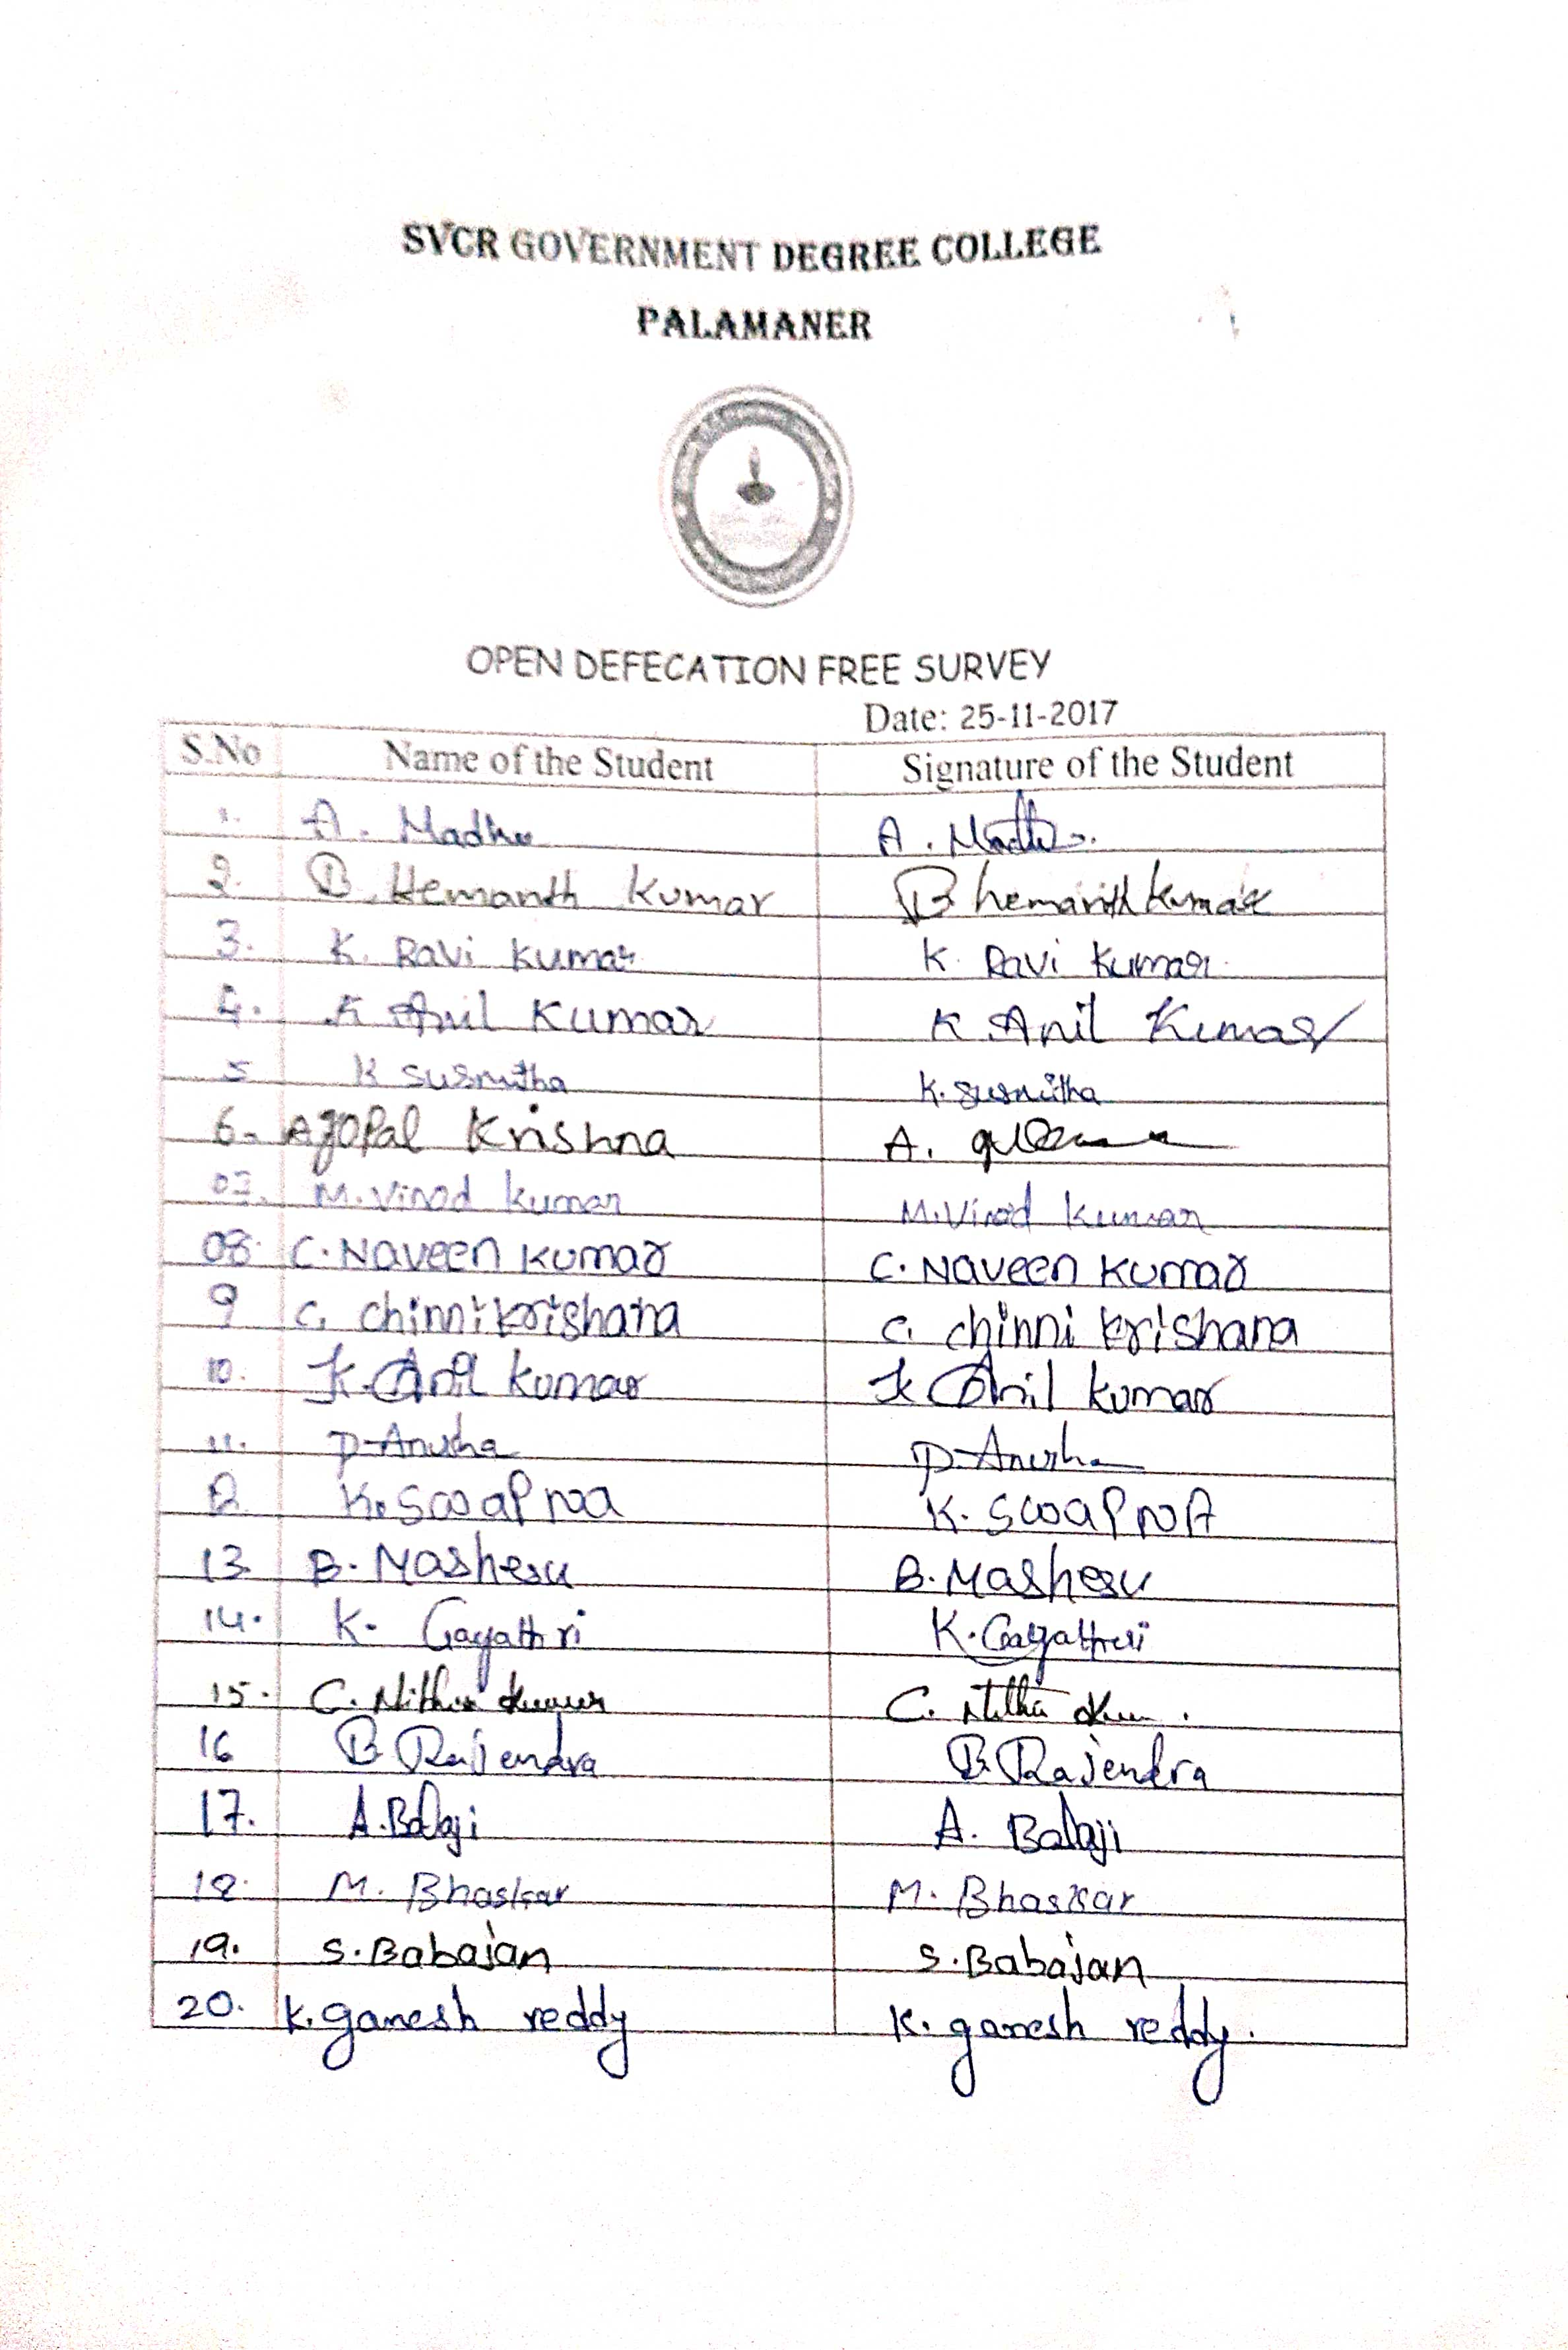 SVCR GOVERNMENT DEGREE COLLEGE
PALAMANER
OPEN DEFECATION FREE SURVEY
Date: 25-11-2017
S.No Name of the Student Signature of the Student
1. A. Madhu A. Madhu
2. B. Hemanth Kumar B hemanth kumar
3. K. Ravi Kumar K. Ravi Kumar
4. K Anil Kumar K Anil Kumar
5 K Susmitha K. Susmitha
6. A gopal Krishna A.
07. M. Vinod kumar M. Vinod kumar
08. C. Naveen Kumar C. Naveen Kumar
9 C. chinni krishana C. chinni krishana
10. K. Anil kumar K Anil kumar
11. P. Anusha P. Anusha
12 K. Swapna K. SwapnA
13. B. Mashesu B. Mashesu
14. K. Gayathri K. Gayathri
15. C. Nithin kumar C.
16 B Rajendra B. Rajendra
17. A. Balaji A. Balaji
18. M. Bhaskar M. Bhaskar
19. S. Babajan S. Babajan
20. K. ganesh reddy K. ganesh reddy.